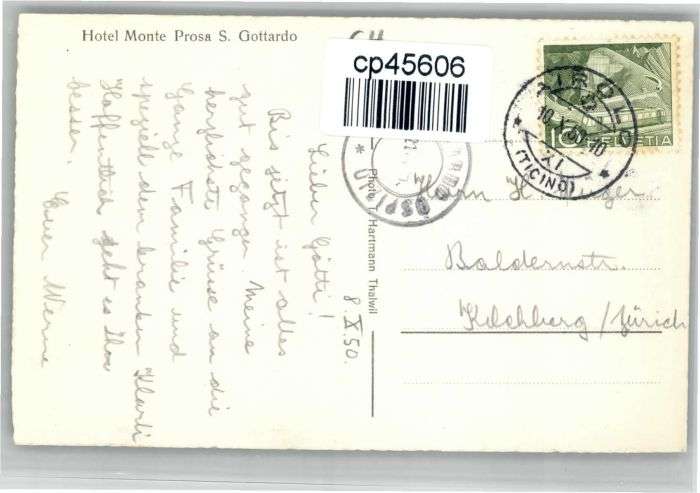 Hotel Monte Prosa S. Gottardo
CH
cp45606
8.X.50.
Lieber Götti!
Bis jetzt ist alles
gut gegangen. Meine
herzlichste Grüsse an die
Ganze Familie und
speziell dem kranken Klärli
Hoffentlich geht es Ihm
besser.
Euer Werne
Photo T. Hartmann Thalwil
OSPIZIO
AIROLO
10.X.50.-10
XI
(TICINO)
10 HELVETIA
Herrn H.
Baldernstr.
Kilchberg/Zürich